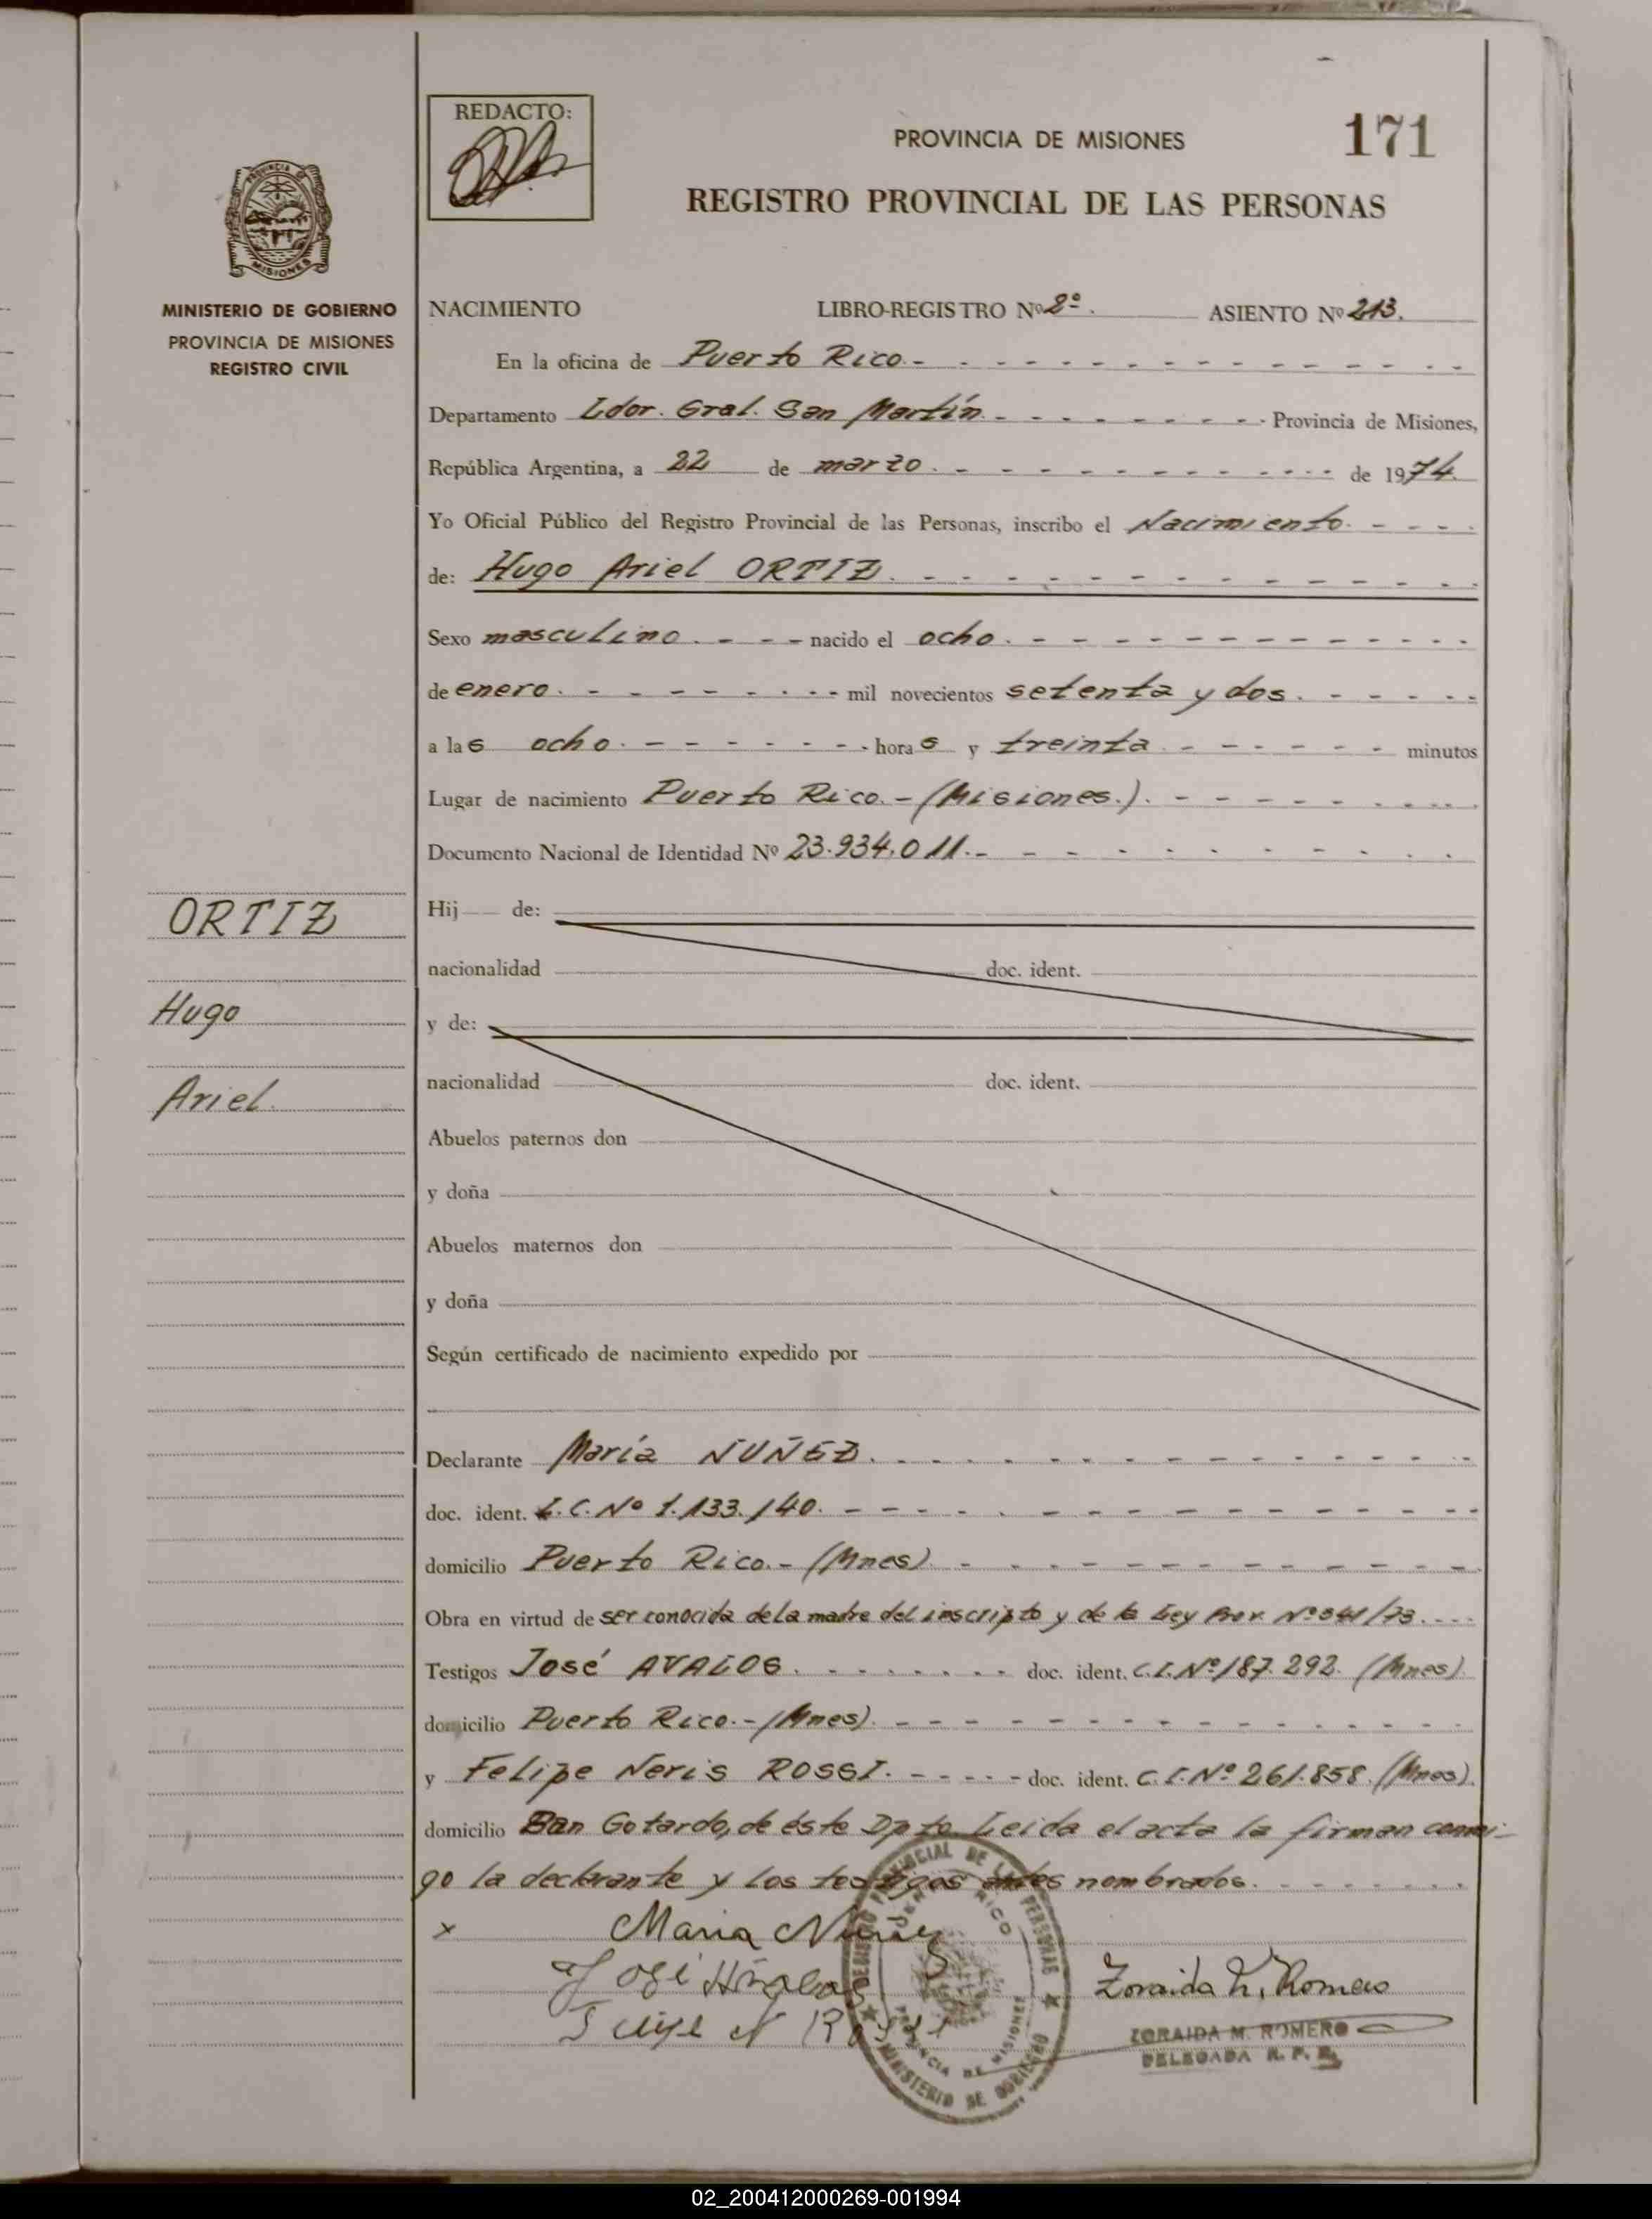 REDACTO:
PROVINCIA DE MISIONES
171
REGISTRO PROVINCIAL DE LAS PERSONAS
PROVINCIA DE
MISIONES
MINISTERIO DE GOBIERNO
PROVINCIA DE MISIONES
REGISTRO CIVIL
NACIMIENTO LIBRO-REGISTRO Nº 2º. ASIENTO Nº 213.
En la oficina de Puerto Rico.-
Departamento Ldor. Gral. San Martín. Provincia de Misiones,
República Argentina, a 22 de marzo. de 1974.
Yo Oficial Público del Registro Provincial de las Personas, inscribo el Nacimiento.
de: Hugo Ariel ORTIZ.
Sexo masculino. nacido el ocho.
de enero. mil novecientos setenta y dos.
a las ocho. horas y treinta. minutos
Lugar de nacimiento Puerto Rico.- (Misiones.).
Documento Nacional de Identidad Nº 23.934.011.-
ORTIZ
Hugo
Ariel.
Hij de:
nacionalidad doc. ident.
y de:
nacionalidad doc. ident.
Abuelos paternos don
y doña
Abuelos maternos don
y doña
Según certificado de nacimiento expedido por
Declarante María NUÑEZ.
doc. ident. L.C. Nº 1.133.140.
domicilio Puerto Rico.- (Mnes).
Obra en virtud de ser conocida de la madre del inscripto y de la Ley Prov. Nº 341/73.
Testigos José AVALOS. doc. ident. C.I. Nº 187.292. (Mnes).
domicilio Puerto Rico.- (Mnes).
y Felipe Neris ROSSI. doc. ident. C.I. Nº 261.858. (Mnes).
domicilio San Gotardo, de éste Dpto. Leida el acta la firman conmi-
go la declarante y los testigos antes nombrados.
x Maria Nuñez
José Avalos
N Rossi
Zoraida M. Romero
ZORAIDA M. ROMERO
DELEGADA R. P. P.
REGISTRO PROVINCIAL DE LAS PERSONAS
MINISTERIO DE GOBIERNO
PROVINCIA DE MISIONES
02_200412000269-001994